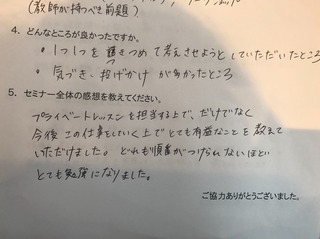 (教師が持つべき前題)
4. どんなところが良かったですか。
・1つ1つを突きつめて考えさせようとしていただいたところ
・気づき、投げかけ があったところ
5. セミナー全体の感想を教えてください。
プライベートレッスンも担当する上で、だけでなく
今後この仕事をしていく上でとても有益なことを教えて
いただけました。どれも順番がつけられないほど
とても勉強になりました。
ご協力ありがとうございました。